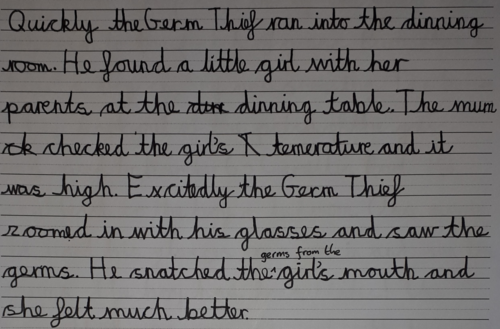 Quickly the Germ Thief ran into the dinning
room. He found a little girl with her
parents at the dinning table. The mum
checked the girl's temerature and it
was high. Excitedly the Germ Thief
zoomed in with his glasses and saw the
germs from the
germs. He snatched the girl's mouth and
she felt much better.